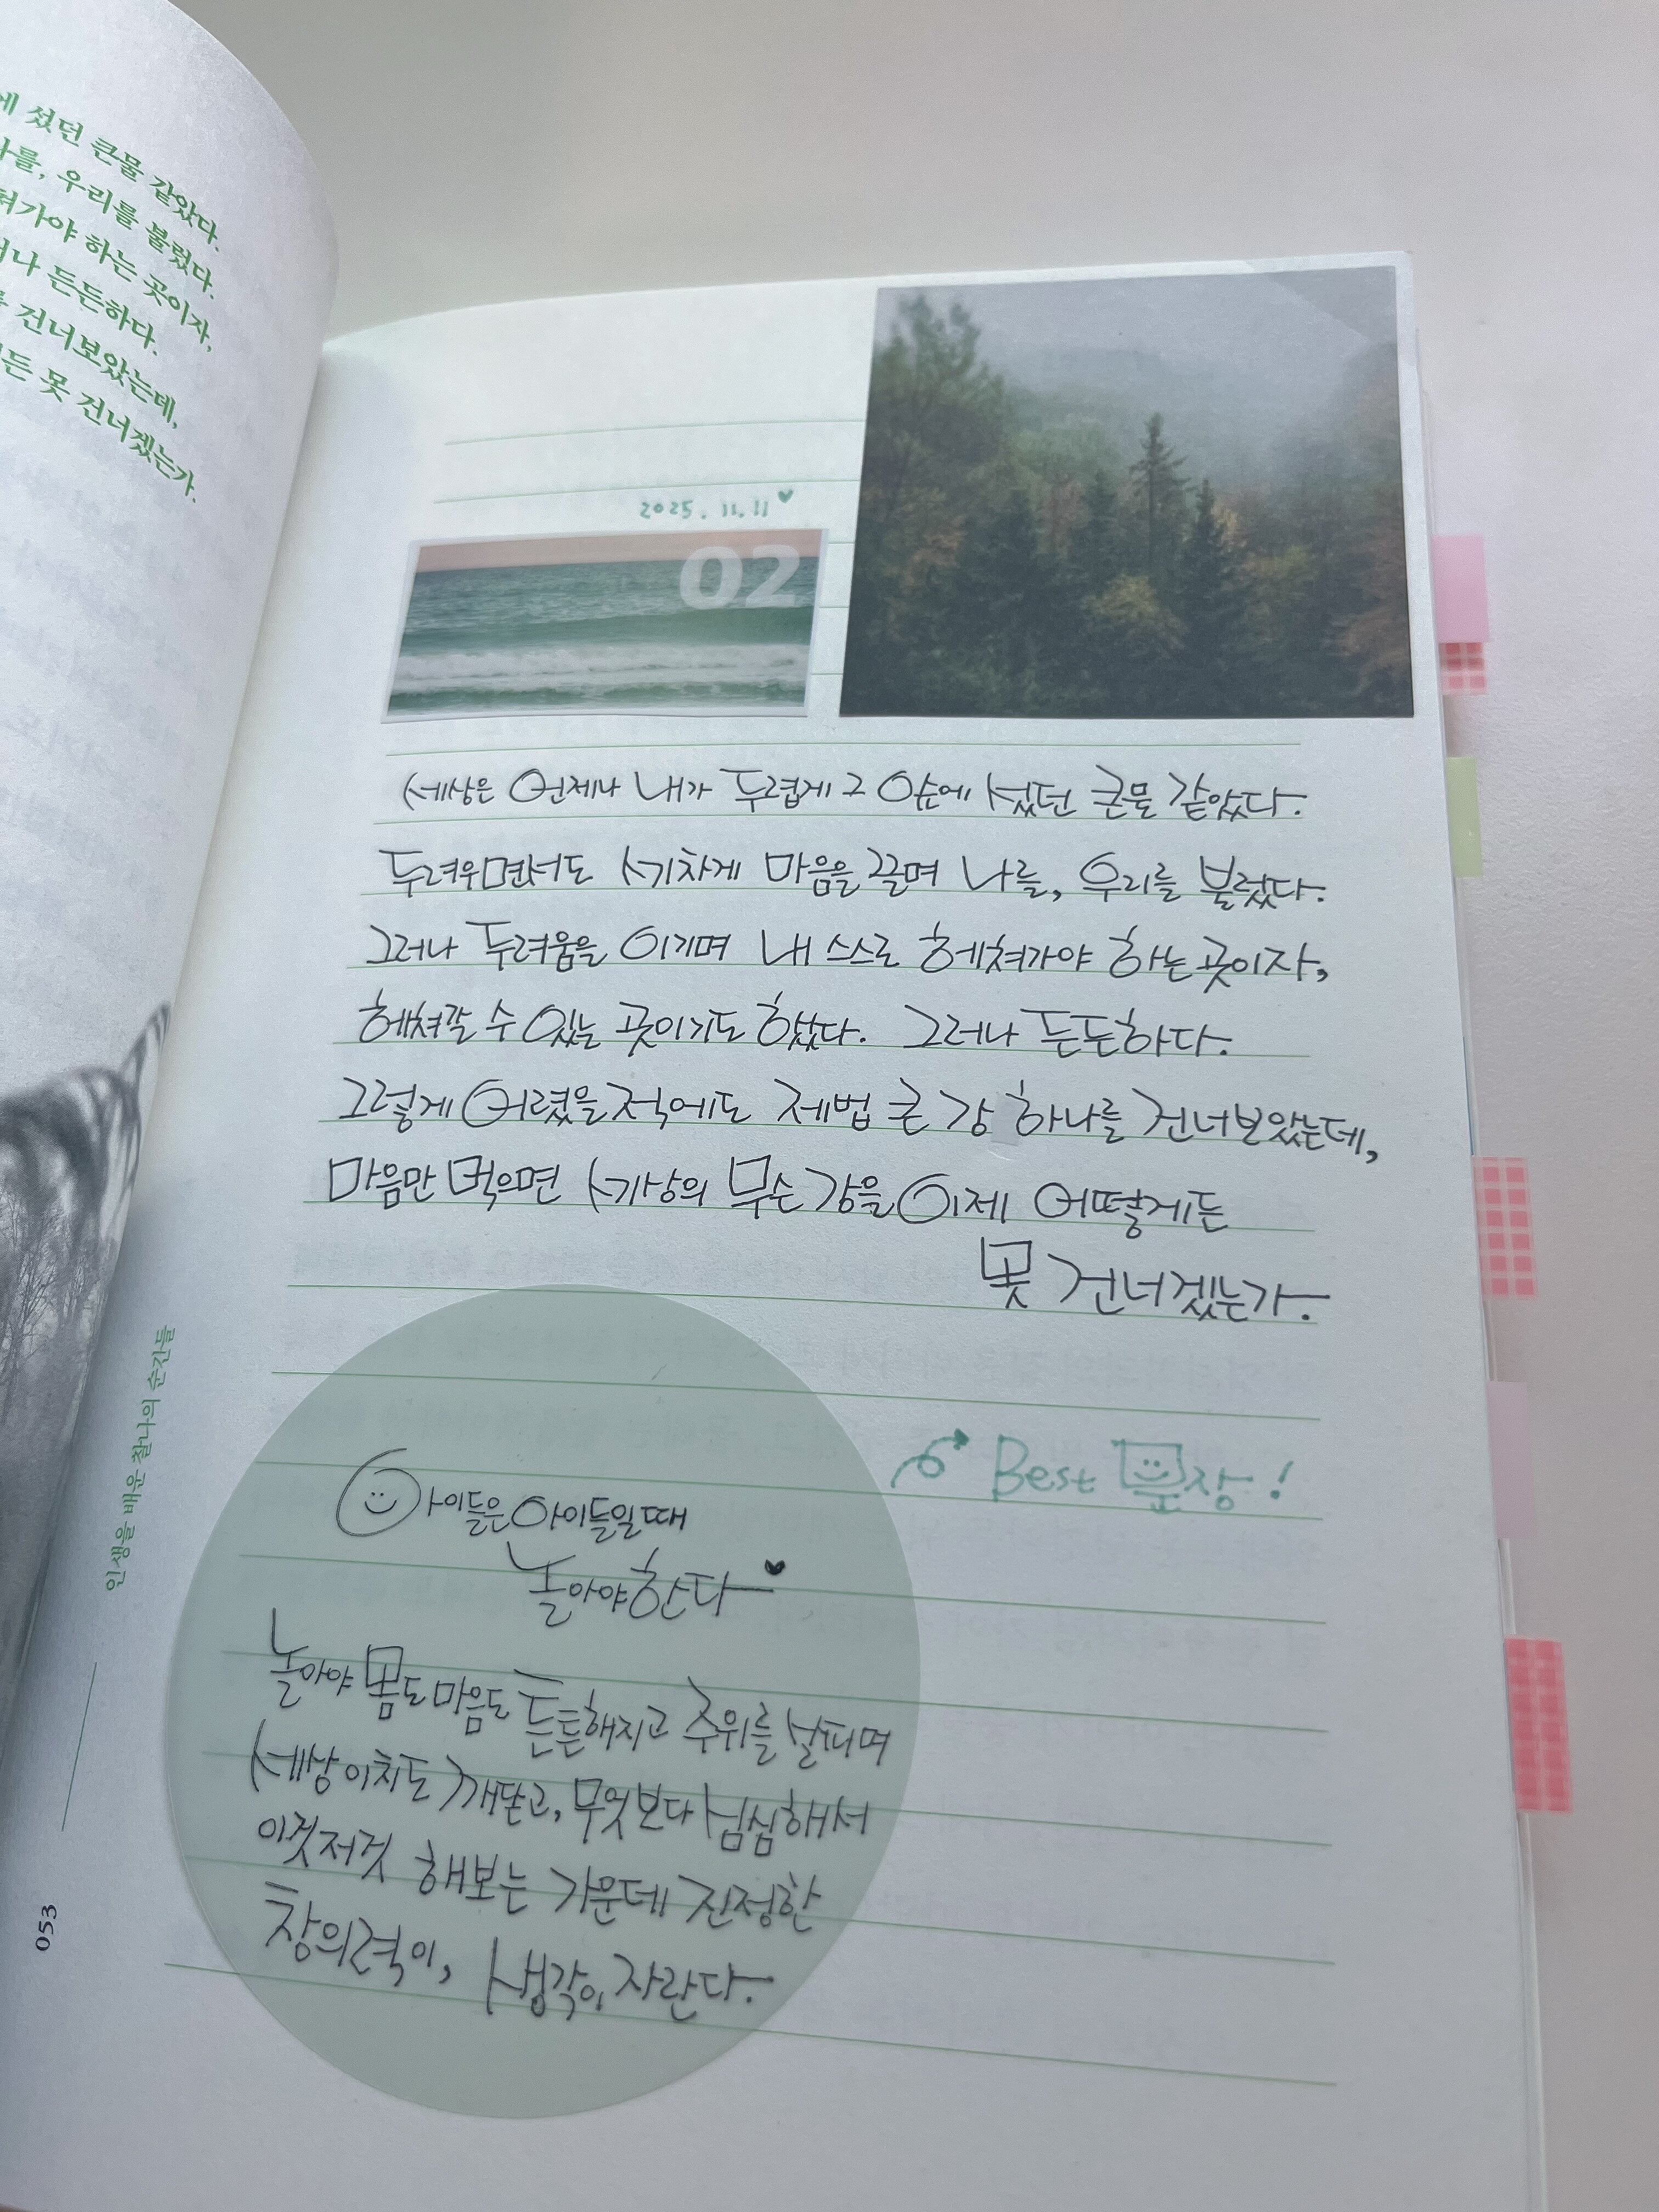 에 섰던 큰물 같았다.
나를, 우리를 불렀다.
쳐가야 하는 곳이자,
러나 든든하다.
를 건너보았는데,
게든 못 건너겠는가.
인생을 배운 찰나의 순간들
053
2025. 11. 11
02
세상은 언제나 내가 두렵게 그 앞에 섰던 큰물 같았다.
두려우면서도 세차게 마음을 끌며 나를, 우리를 불렀다.
그러나 두려움을 이기며 내 스스로 헤쳐가야 하는 곳이자,
헤쳐갈 수 있는 곳이기도 했다. 그러나 든든하다.
그렇게 어렸을 적에도 제법 큰 강 하나를 건너보았는데,
마음만 먹으면 세상의 무슨 강을 이제 어떻게든
못 건너겠는가.
Best 문장!
아이들은 아이들일때
놀아야한다
놀아야 몸도 마음도 튼튼해지고 주위를 살피며
세상 이치도 깨닫고, 무엇보다 심심해서
이것저것 해보는 가운데 진정한
창의력이, 생각이 자란다.